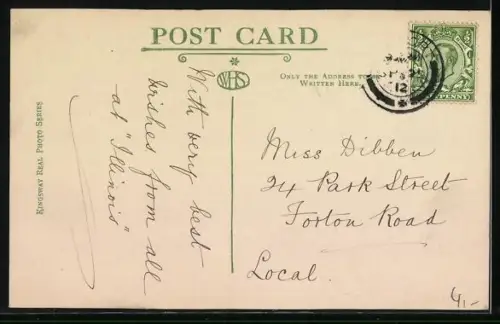 POST CARD
WHS
ONLY THE ADDRESS TO BE
WRITTEN HERE.
KINGSWAY REAL PHOTO SERIES
With very best
wishes from all
at "Illinois"
Miss Dibben
24 Park Street
Forton Road
Local.
12
PENNY
4,-